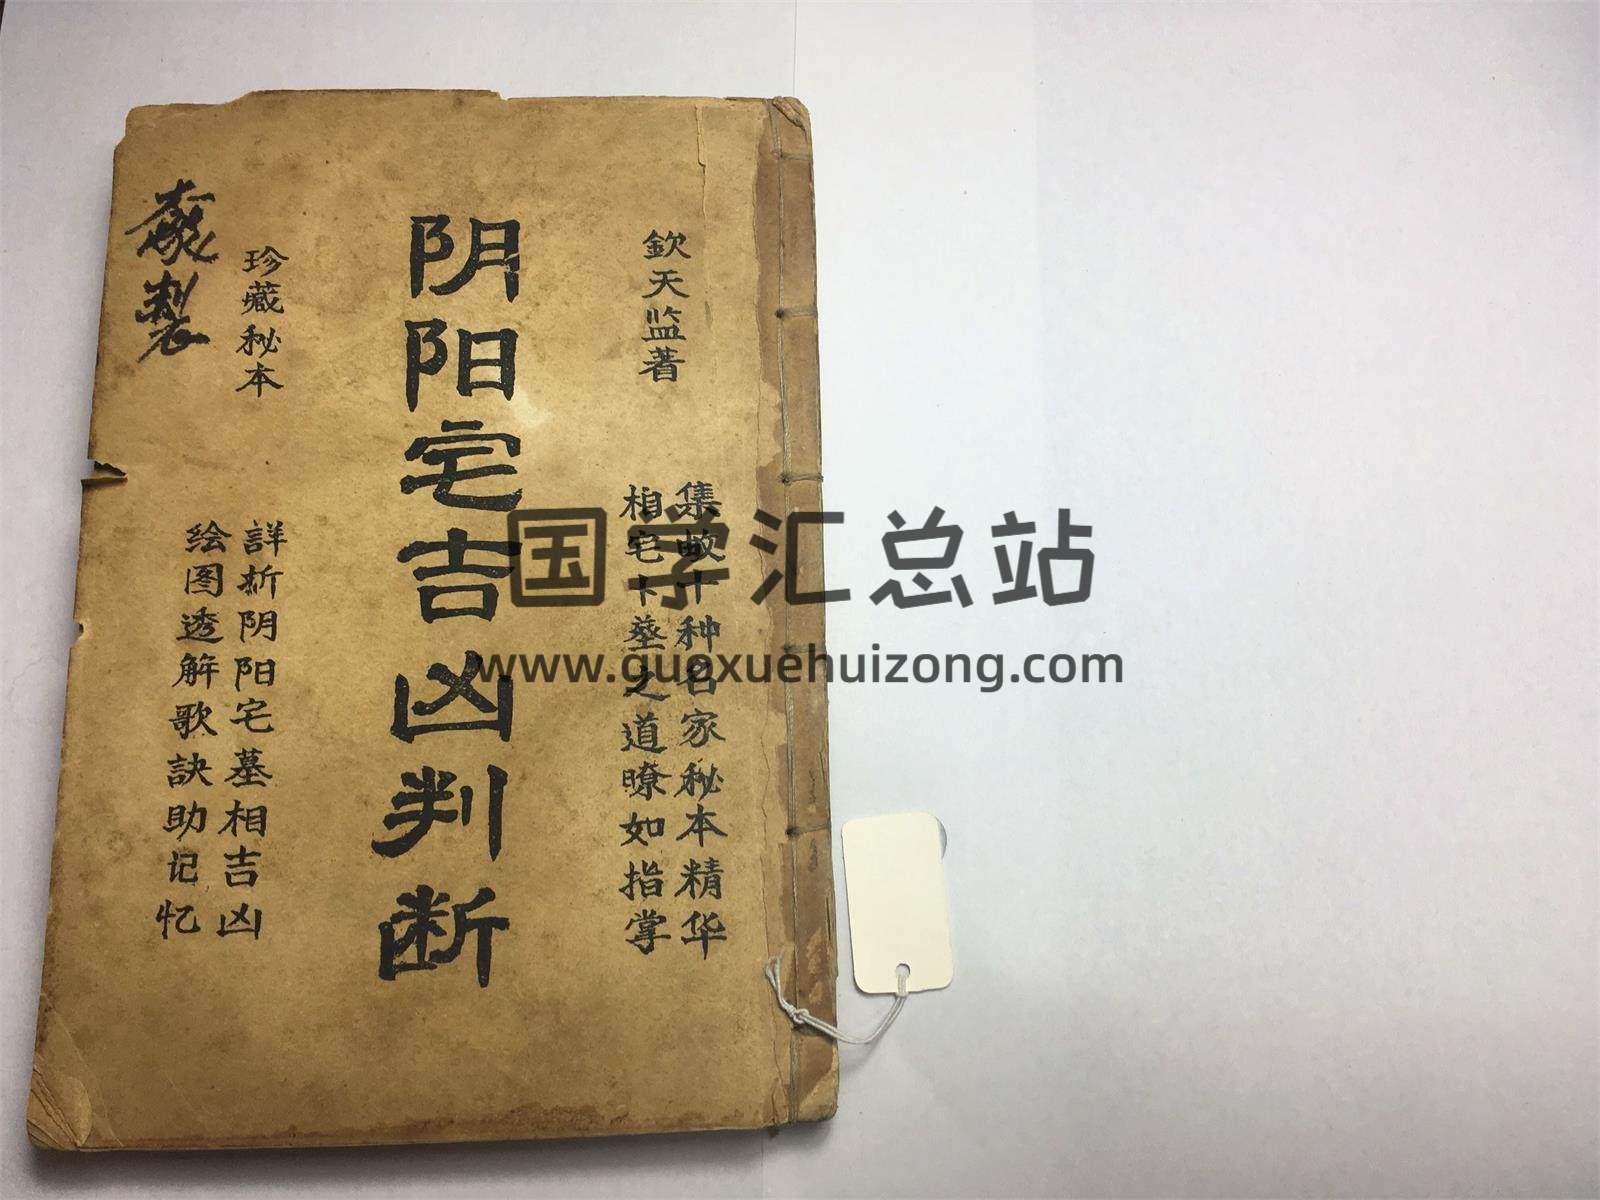 钦天监著
集故十种名家秘本精华
相宅卜墓之道暸如指掌
阴阳宅吉凶判断
珍藏秘本
詳析阴阳宅墓相吉凶
绘图透解歌訣助记忆
製
国学汇总站
www.guoxuehuizong.com